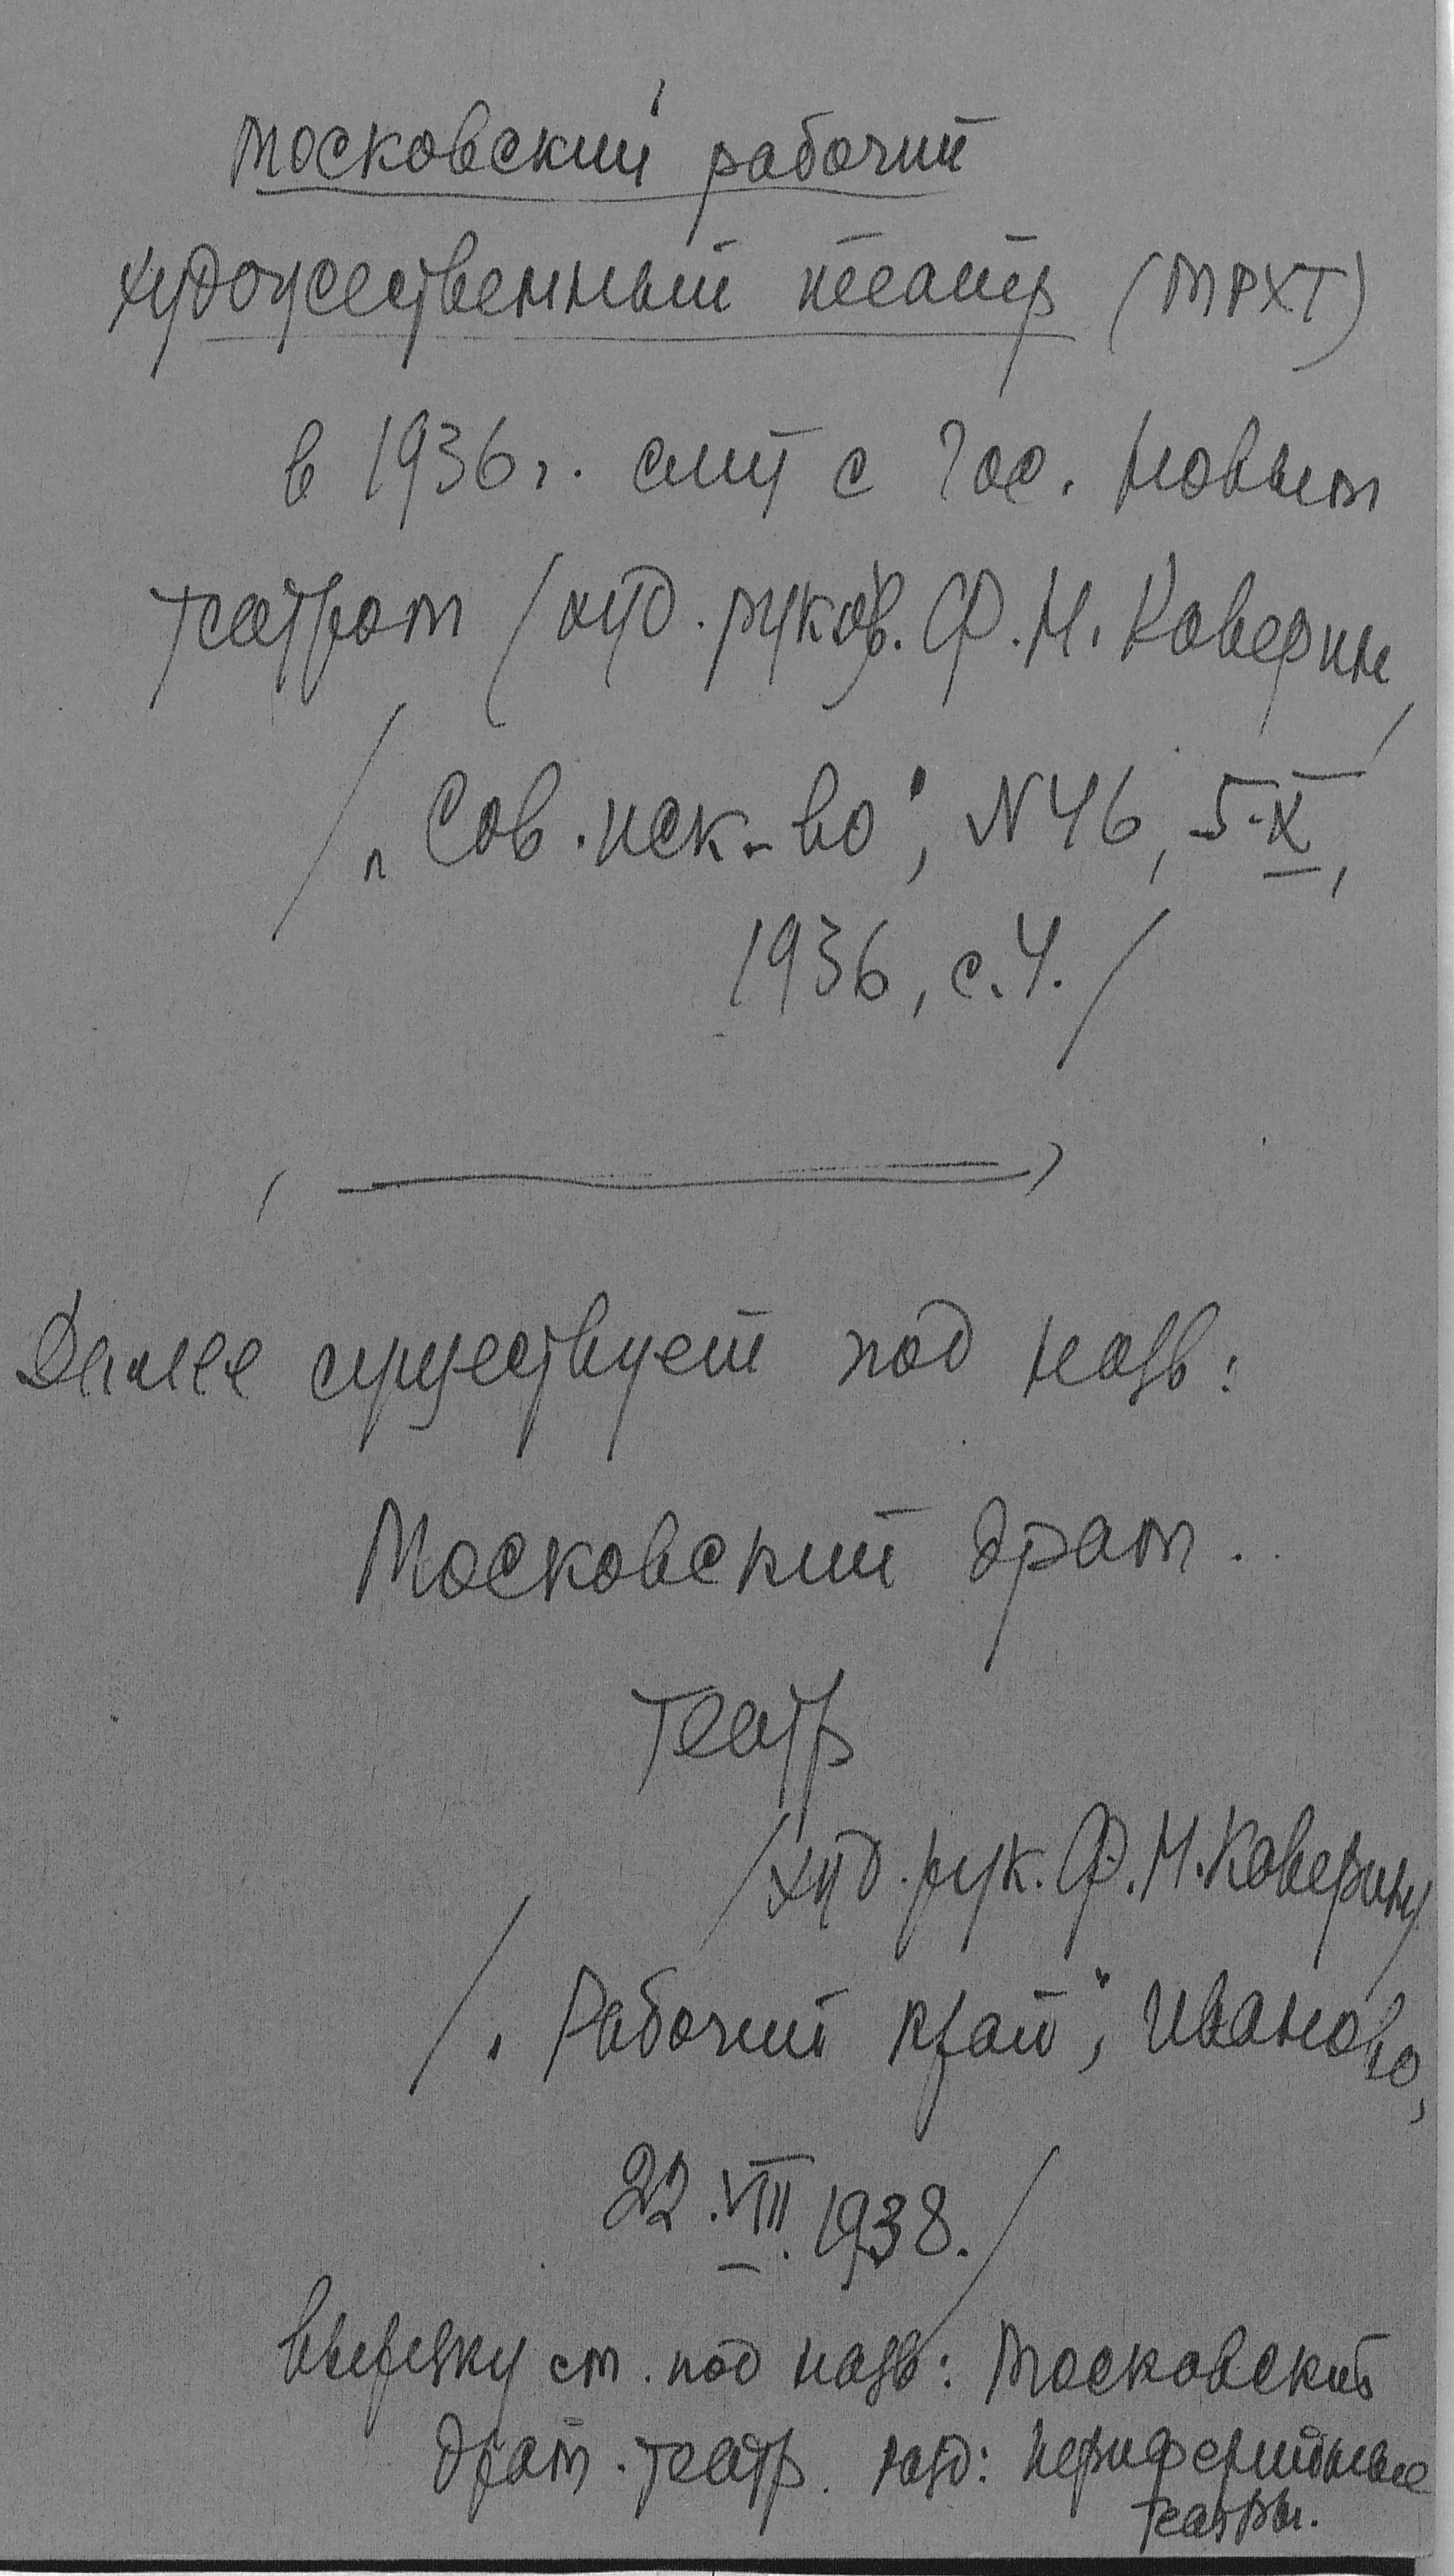 Московский рабочий
художественный театр (МРХТ)
в 1936 г. слит с Гос. Новым
театром /худ. руков. Ф. Н. Каверин/
/„Сов. иск-во", N 46, 5.X,
1936, с. 4./
Далее существует под назв:
Московский драм.
театр
/худ. рук. Ф. Н. Каверин/
/„Рабочий край", Иваново,
22.VIII.1938./
Вырезку см. под назв: Московский
драм. театр. разд: Периферийные
театры.